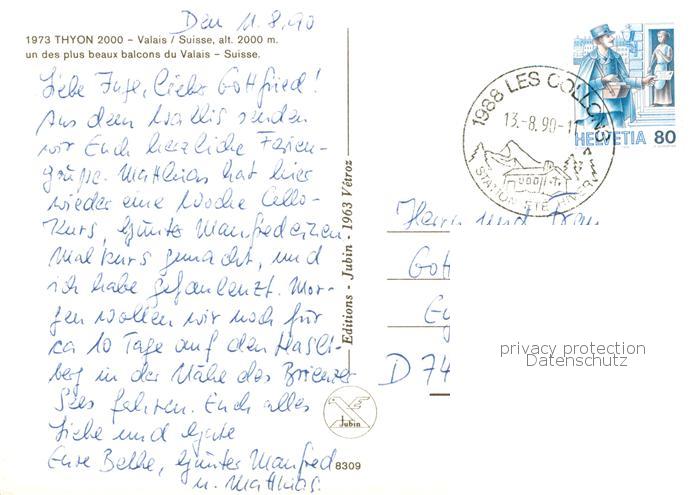 Den 11.8.90
1973 THYON 2000 - Valais / Suisse, alt. 2000 m.
un des plus beaux balcons du Valais - Suisse.
Liebe Inge, lieber Gottfried!
Aus dem Wallis senden
wir Euch herzliche Ferien-
grüße. Matthias hat hier
wieder eine Woche Cello-
Kurs, Günter Manfred einen
Malkurs gemacht, und
ich habe gefaulenzt. Mor-
gen wollen wir noch für
ca 10 Tage auf den Hasli-
berg in der Nähe des Brienzer
Sees fahren. Euch alles
Liebe und Gute
Eure Bethe, Günter Manfred
u. Matthias.
Editions - Jubin - 1963 Vétroz
Jubin
8309
1988 LES COLLONS
13.-8.90-11
STATION ÉTÉ HIVER
HELVETIA 80
Herrn und Frau
Gott
D 74
privacy protection
Datenschutz